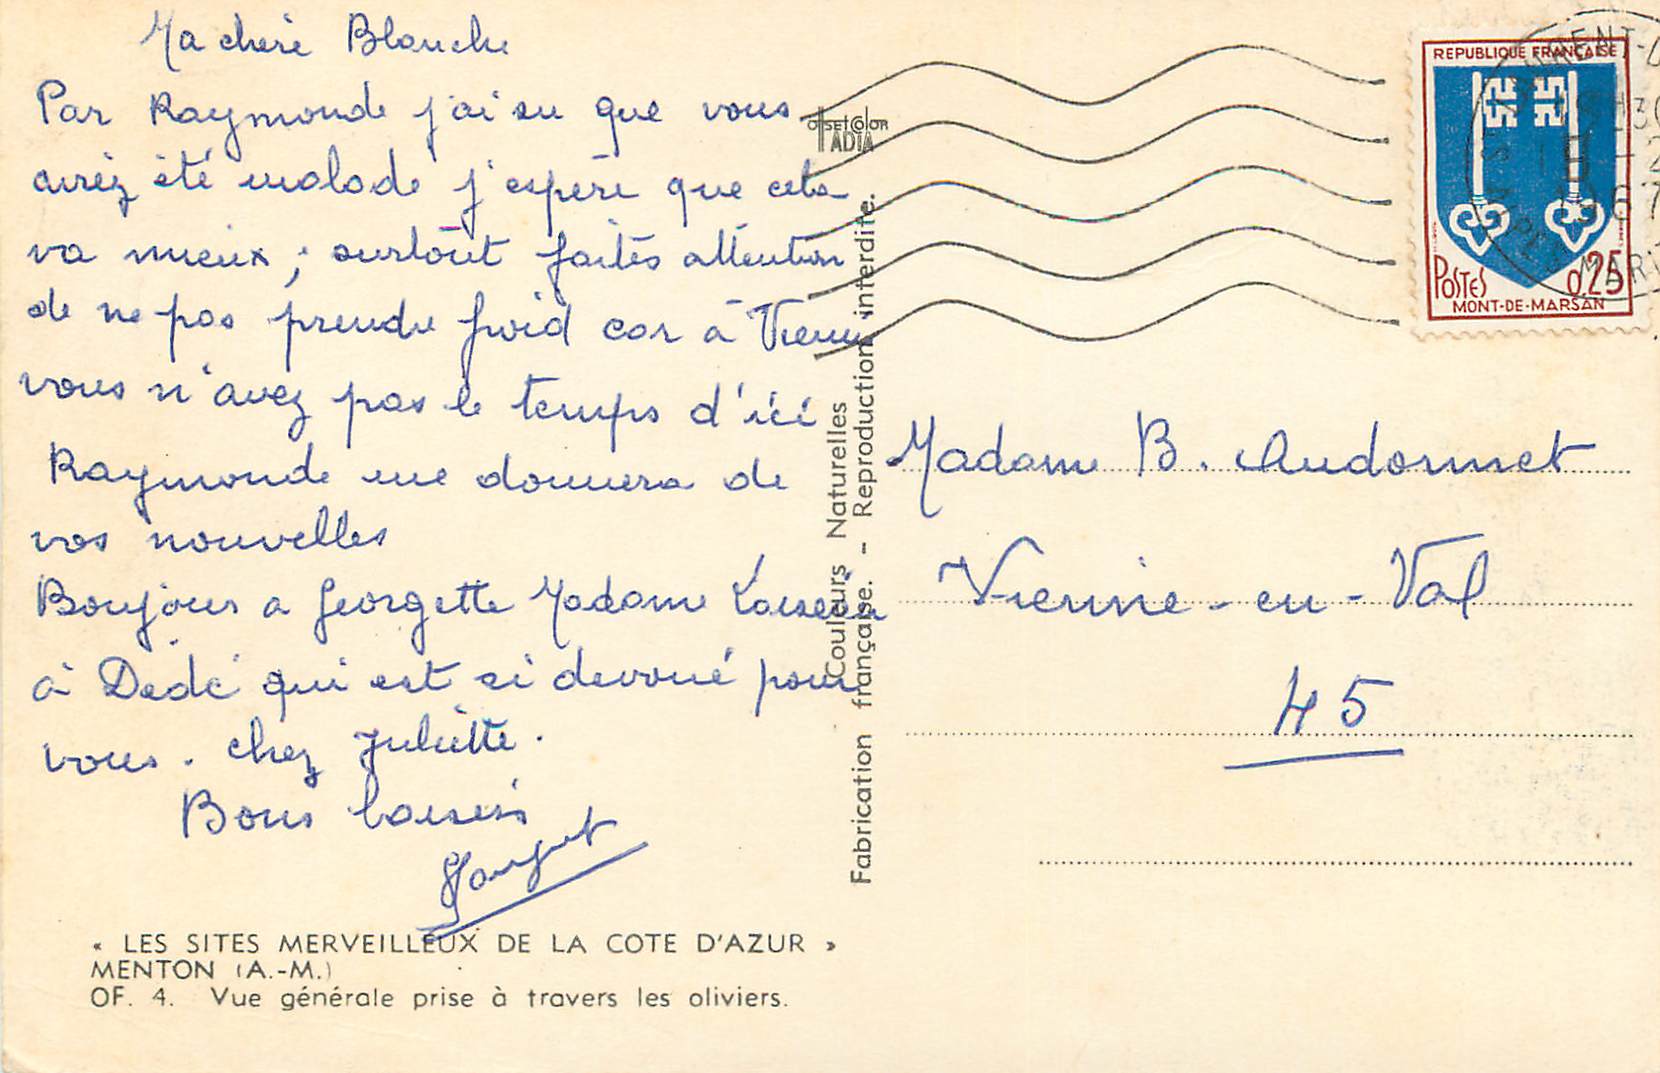 Ma chère Blanche
Par Raymonde j'ai su que vous
aviez été malade j'espère que cela
va mieux ; surtout faites attention
de ne pas prendre froid car à Vienne
vous n'avez pas le temps d'ici
Raymonde me donnera de
vos nouvelles
Bonjour a Georgette Madame
à Dédé qui est si dévoué pour
vous. chez Juliette.
Bons baisers
« LES SITES MERVEILLEUX DE LA COTE D'AZUR »
MENTON (A.-M.)
OF. 4. Vue générale prise à travers les oliviers.
OFFSET COLOR
ADIA
Couleurs Naturelles
Fabrication française. - Reproduction interdite.
REPUBLIQUE FRANÇAISE
POSTES 0,25
MONT-DE-MARSAN
1967
Madame B. Audonnet
Vienne-en-Val
45